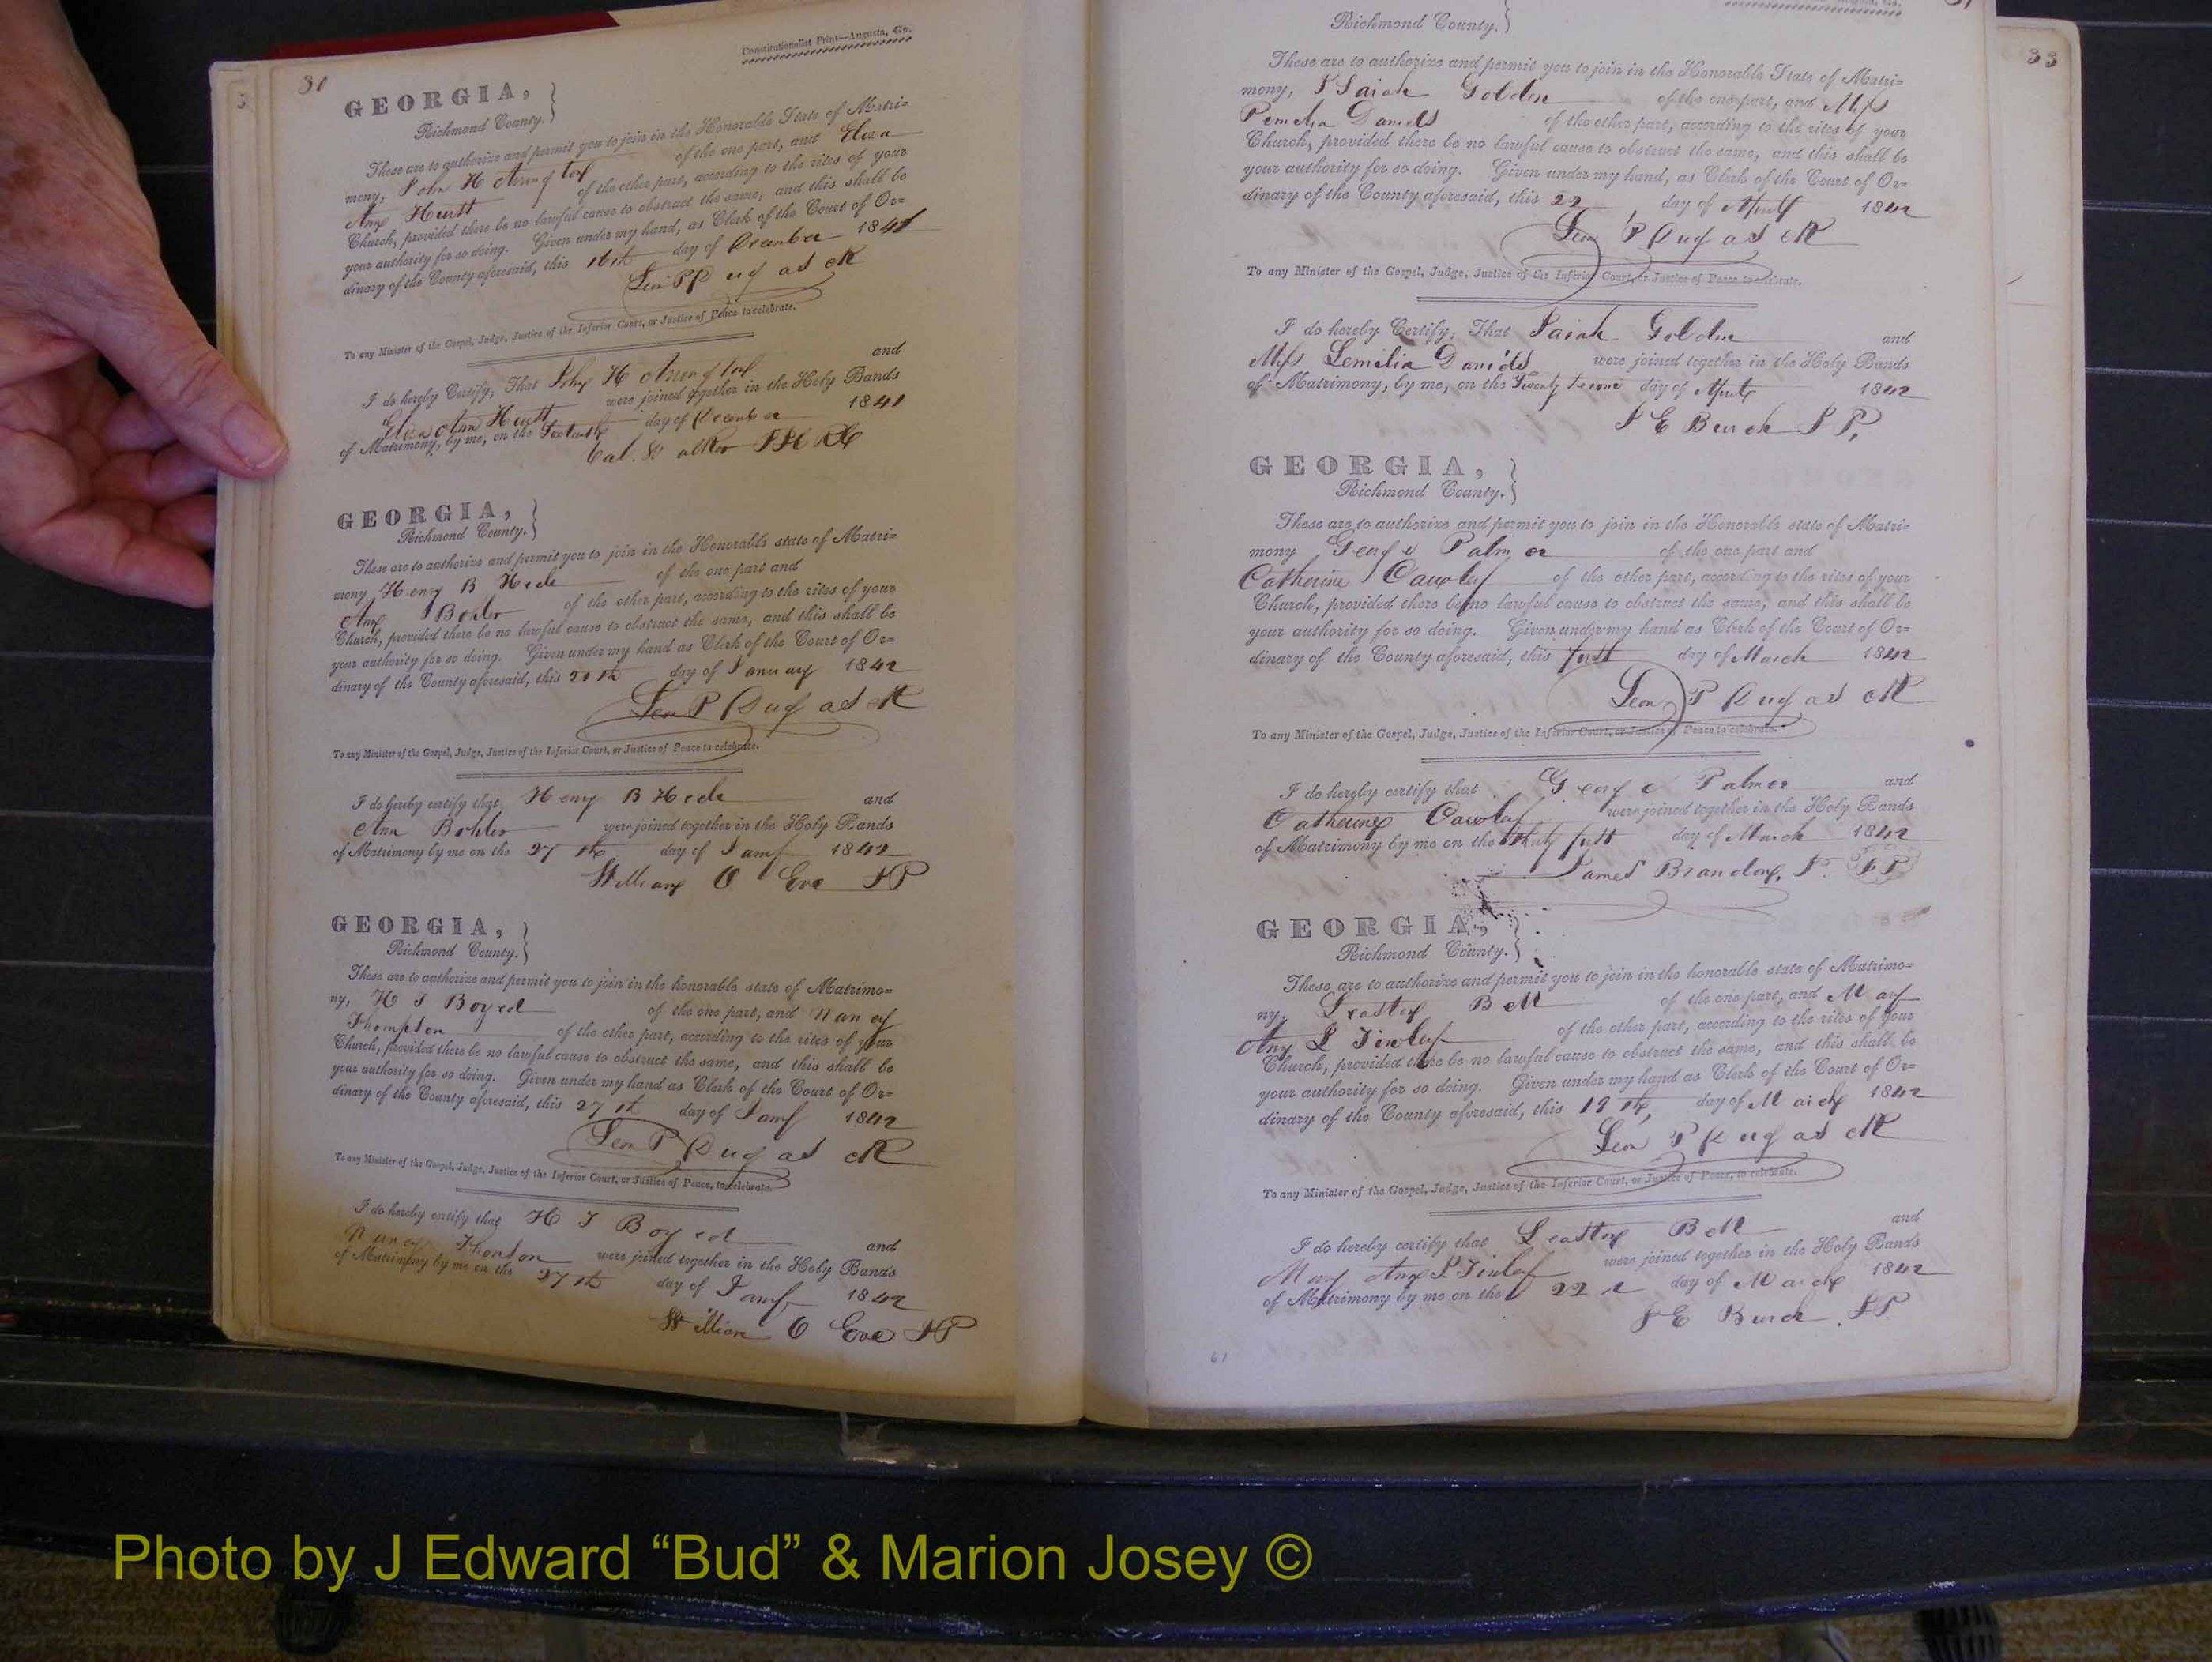 30
Constitutionalist Print—Augusta, Ga.
GEORGIA,
Richmond County.
These are to authorize and permit you to join in the Honorable State of Matri=
mony, John H of the one part, and Eliza
Ann of the other part, according to the rites of your
Church, provided there be no lawful cause to obstruct the same, and this shall be
your authority for so doing. Given under my hand, as Clerk of the Court of Or=
dinary of the County aforesaid, this 16th day of December 1841
Leon P Dugas
To any Minister of the Gospel, Judge, Justice of the Inferior Court, or Justice of Peace to celebrate.
I do hereby Certify, That John H and
Eliza Ann were joined together in the Holy Bands
of Matrimony, by me, on the day of December 1841
Walker
GEORGIA,
Richmond County.
These are to authorize and permit you to join in the Honorable state of Matri-
mony Henry B of the one part and
Ann Bohler of the other part, according to the rites of your
Church, provided there be no lawful cause to obstruct the same, and this shall be
your authority for so doing. Given under my hand as Clerk of the Court of Or=
dinary of the County aforesaid, this day of January 1842
Leon P Dugas
To any Minister of the Gospel, Judge, Justice of the Inferior Court, or Justice of Peace to celebrate.
I do hereby certify that Henry B and
Ann Bohler were joined together in the Holy Bands
of Matrimony by me on the 27th day of Jany 1842
William O Eve JP
GEORGIA,
Richmond County.
These are to authorize and permit you to join in the honorable state of Matrimo=
ny, H J Boyed of the one part, and Nancy
Thompson of the other part, according to the rites of your
Church, provided there be no lawful cause to obstruct the same, and this shall be
your authority for so doing. Given under my hand as Clerk of the Court of Or=
dinary of the County aforesaid, this 27th day of Jany 1842
Leon P Dugas
To any Minister of the Gospel, Judge, Justice of the Inferior Court, or Justice of Peace, to celebrate.
I do hereby certify that H J Boyed and
Nancy were joined together in the Holy Bands
of Matrimony by me on the 27th day of Jany 1842
William O Eve JP
Richmond County.
These are to authorize and permit you to join in the Honorable State of Matri=
mony, Isaiah Golden of the one part, and Miss
Daniels of the other part, according to the rites of your
Church, provided there be no lawful cause to obstruct the same, and this shall be
your authority for so doing. Given under my hand, as Clerk of the Court of Or=
dinary of the County aforesaid, this 22 day of April 1842
Leon P Dugas
To any Minister of the Gospel, Judge, Justice of the Inferior Court, or Justice of Peace to celebrate.
I do hereby Certify, That Golden and
Miss Daniels were joined together in the Holy Bands
of Matrimony, by me, on the Twenty day of April 1842
J E Burch J P.
GEORGIA,
Richmond County.
These are to authorize and permit you to join in the Honorable state of Matri=
mony George Palmer of the one part and
Catherine of the other part, according to the rites of your
Church, provided there be no lawful cause to obstruct the same, and this shall be
your authority for so doing. Given under my hand as Clerk of the Court of Or=
dinary of the County aforesaid, this day of March 1842
Leon P Dugas
To any Minister of the Gospel, Judge, Justice of the Inferior Court, or Justice of Peace to celebrate.
I do hereby certify that George Palmer and
Catherine were joined together in the Holy Bands
of Matrimony by me on the day of March 1842
James Brandon, J. P
GEORGIA,
Richmond County.
These are to authorize and permit you to join in the honorable state of Matrimo=
ny, Bell of the one part, and Mary
Ann S Finley of the other part, according to the rites of your
Church, provided there be no lawful cause to obstruct the same, and this shall be
your authority for so doing. Given under my hand as Clerk of the Court of Or=
dinary of the County aforesaid, this 19th, day of March 1842
Leon P Dugas
To any Minister of the Gospel, Judge, Justice of the Inferior Court, or Justice of Peace, to celebrate.
I do hereby certify that Bell and
Mary Ann S. Finley were joined together in the Holy Bands
of Matrimony by me on the 22 day of March 1842
J E Burch. JP.
61
33
Photo by J Edward “Bud” & Marion Josey ©